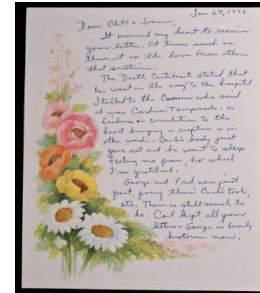 Jan 29, 1978
Dear Cliff &
It warmed my heart to receive
your letter, at times such as
these it is the love from others
that sustains.
The Death Certificate stated that
he went on the way to the hospital.
I talked to the Coroner who said
it was Cardiac
failure in circulation to the
heart bringing a rupture or in
other words - Carl's body just
gave out and he went to sleep
feeling no pain, for which
I'm grateful.
George and Fred were just
great, going thru Carl's tools,
etc. There is still much to
do. Carl kept all your
letters - George is
now.